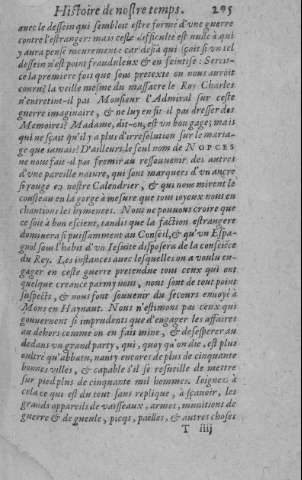 Histoire de nostre temps. 295
auec le dessein qui sembloit estre formé d'vne guerre
contre l'estranger: mais ceste difficulté est nulle à qui
y aura pensé meurement: car desià qui sçait si vn tel
dessein n'est point frauduleux & en feintise? Seroit-
ce la premiere fois que sous pretexte on nous auroit
contez? la veille mesme du massacre le Roy Charles
n'entretint-il pas Monsieur l'Admiral sur ceste
guerre imaginaire, & ne luy en fit-il pas dresser des
Memoires? Madame, dit-on, est vn bon gage; mais
qui ne sçait qu'il y a plus d'irresolution sur le maria-
ge que iamais? D'ailleurs, le seul nom de NOPCES
ne nous fait-il pas fremir au ressouuenir des autres
d'vne pareille nature, qui sont marquees d'vn ancre
si rouge en nostre Calendrier, & qui nous mirent le
cousteau en la gorge à mesure que tous ioyeux nous en
chantions les hymenees. Nous ne pouuons croire que
ce soit à bon escient, tandis que la faction estrangere
dominera si puissamment au Conseil, & qu'vn Espa-
gnol sous l'habit d'vn Iesuite disposera de la consciēce
du Roy. Les instances auec lesquelles on a voulu en-
gager en ceste guerre pretendue tous ceux qui ont
quelque creance parmy nous, nous sont de tout point
suspects, & nous font souuenir du secours enuoyé à
Mons en Haynaut. Nous n'estimons pas ceux qui
gouuernent si imprudents que d'engager les affaires
au dehors comme on en fait mine, & desesperer au
dedans vn grand party, qui, quoy qu'on die, est plus
outré qu'abbatu, nanty encores de plus de cinquante
bonnes villes, & capable s'il se resueille de mettre
sur pied plus de cinquante mil hommes. Ioignez à
cela ce qui est du tout sans replique, à sçauoir, les
grands appareils de vaisseaux, armes, munitions de
guerre & de gueule, picqs, paelles, & autres choses
T iiij